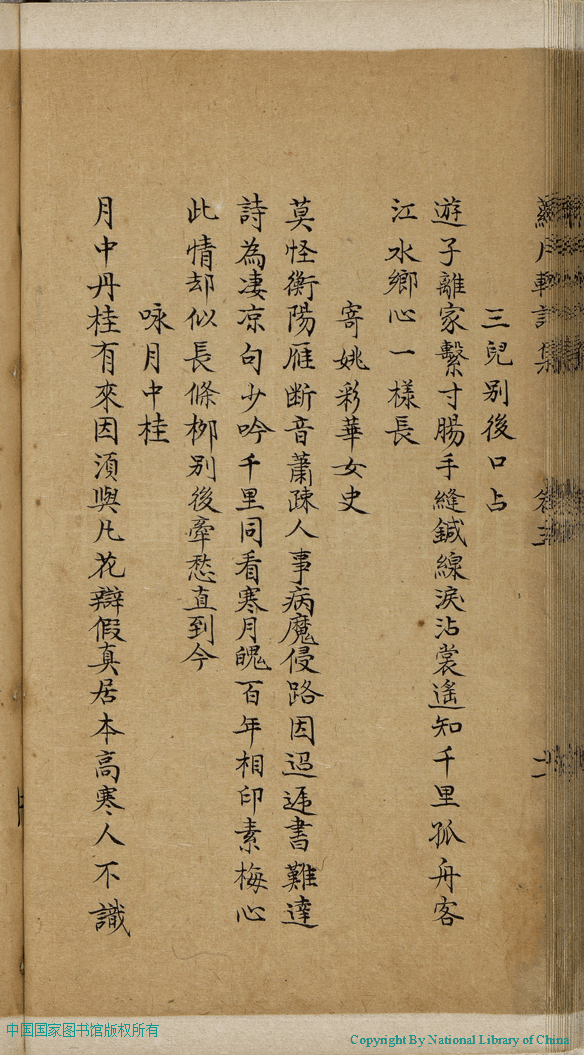 三兒別後口占
遊子離家繫寸腸手縫鍼線淚沾裳遙知千里孤舟客
江水鄉心一樣長
寄姚彩華女史
莫怪衡陽雁断音蕭疎人事病魔侵路因迢遞書難達
詩為凄凉句少吟千里同看寒月魄百年相印素梅心
此情却似長條栁別後牽愁直到今
咏月中桂
月中丹桂有來因須與凢花辯假真居本高寒人不識
中国国家图书馆版权所有
Copyright By National Library of China